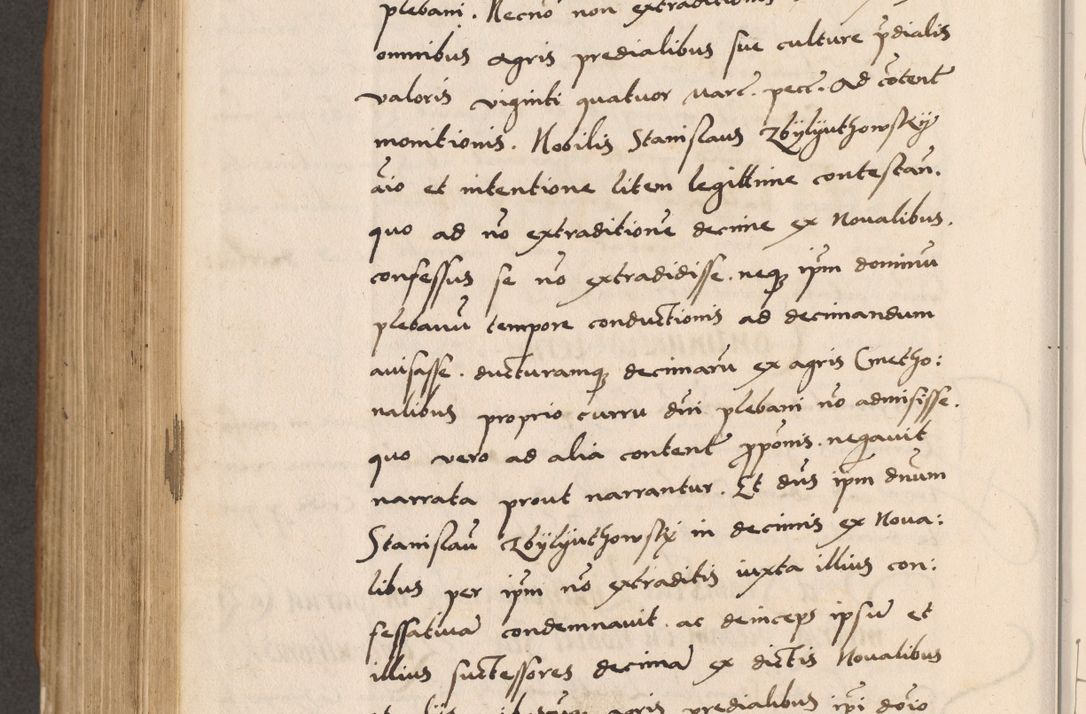 plebani. Necno non extraditionis
omnibus agris predialibus sue culture p̄dialis
valoris viginti quatuor marc. pecc. Ad cōtent
monitionis. Nobilis Stanislaus Zbÿlÿuthowskÿ
aīo et intentione litem legittime contestan̄.
quo ad nō extraditionē decime ex Novalibus.
confessus se nō extradidisse. neq; ip̄m dominū
plebanū tempore conductionis ad decimandum
avisasse. ducturamq; decimarū ex agris Cmetho:
nalibus proprio curru dn̄i plebani nō admisisse.
quo vero ad alia content̄ p̄ponis. negavit
narrata prout narrantur. Et dn̄s ip̄m dnūm
Stanislaū Zbÿlÿuthowskÿ in decimis ex Nova:
libus per ip̄m nō extraditis iuxta illius con:
fessativā condemnavit. ac deinceps ipsū et
illius suctessores decimā ex dictis Novalibus
agris predialibus ip̄i dn̄io